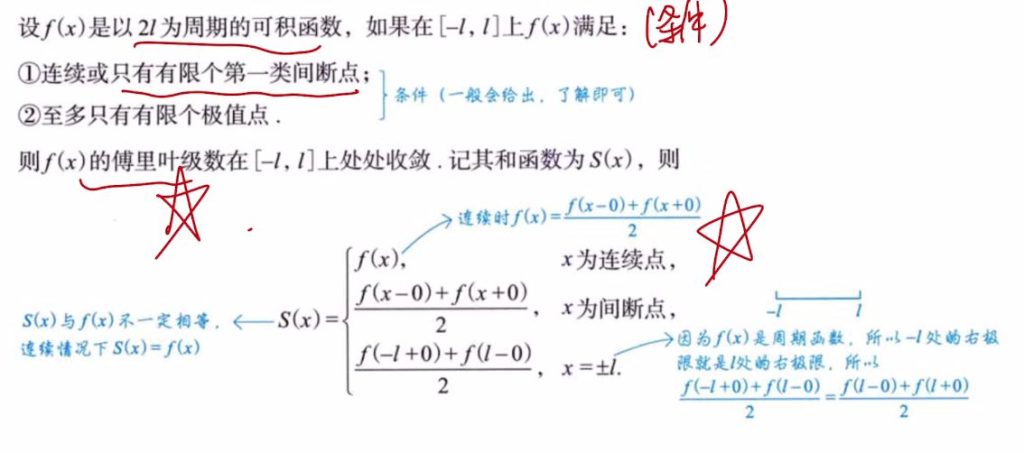 设f(x)是以2l为周期的可积函数，如果在[-l, l]上f(x)满足：(条件)
①连续或只有有限个第一类间断点；
条件（一般会给出，了解即可）
②至多只有有限个极值点.
则f(x)的傅里叶级数在[-l, l]上处处收敛.记其和函数为S(x)，则
连续时f(x)=\frac{f(x-0)+f(x+0)}{2}
S(x)={f(x), x为连续点，
\frac{f(x-0)+f(x+0)}{2}, x为间断点，
\frac{f(-l+0)+f(l-0)}{2}, x=±l.
S(x)与f(x)不一定相等，
连续情况下S(x)=f(x)
-l l
因为f(x)是周期函数，所以-l处的右极
限就是l处的右极限，所以
\frac{f(-l+0)+f(l-0)}{2}=\frac{f(l-0)+f(l+0)}{2}